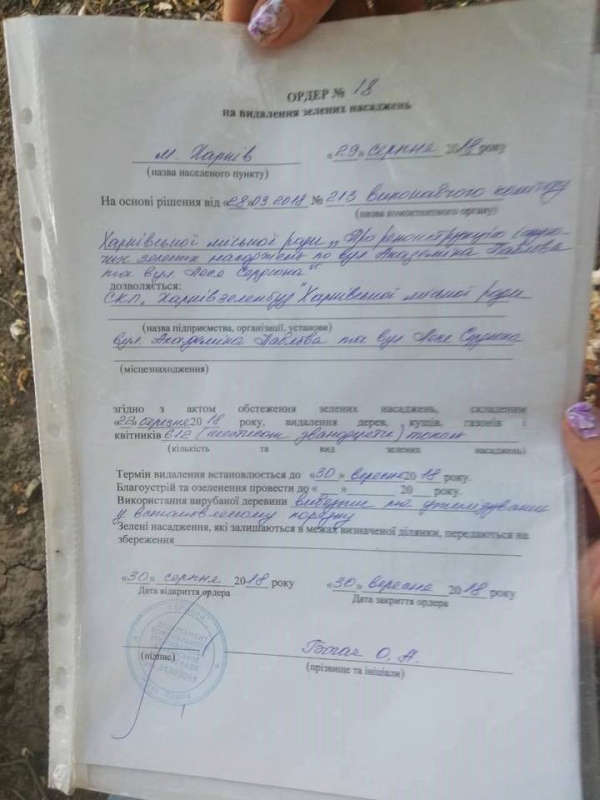 ОРДЕР № 18
на видалення зелених насаджень
м. Харків «29» серпня 2018 року
(назва населеного пункту)
На основі рішення від «28.03.2018 № 213 виконавчого комітету
(назва компетентного органу)
Харківської міської ради „Про реконструкцію
зелених насаджень по вул Академіка Павлова
та вул "
дозволяється:
СКП „Харківзеленбуд" Харківської міської ради
(назва підприємства, організації, установи)
вул. Академіка Павлова та вул
(місцезнаходження)
згідно з актом обстеження зелених насаджень, складеним
«22» березня 2018 року, видалення дерев, кущів, газонів і
квітників 612 (шістсот дванадцять) тополь
(кількість та вид зелених насаджень)
Термін видалення встановлюється до «30» вересня 2018 року.
Благоустрій та озеленення провести до «___»________ 20___ року.
Використання вирубаної деревини вивезти та утилізувати
у встановленому порядку
Зелені насадження, які залишаються в межах визначеної ділянки, передаються на
збереження
«30» серпня 2018 року «30» вересня 2018 року
Дата відкриття ордера Дата закриття ордера
О. А.
(підпис) (прізвище та ініціали)